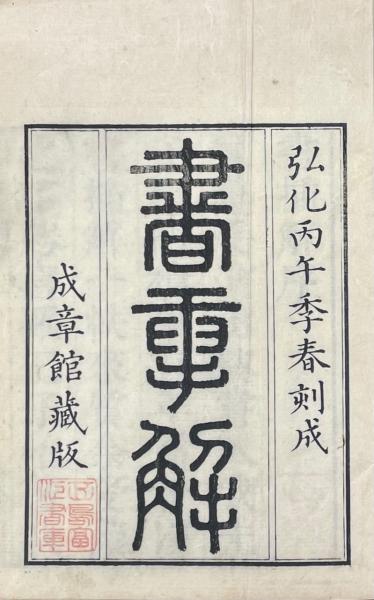 弘化丙午季春刻成
書解
成章館藏版